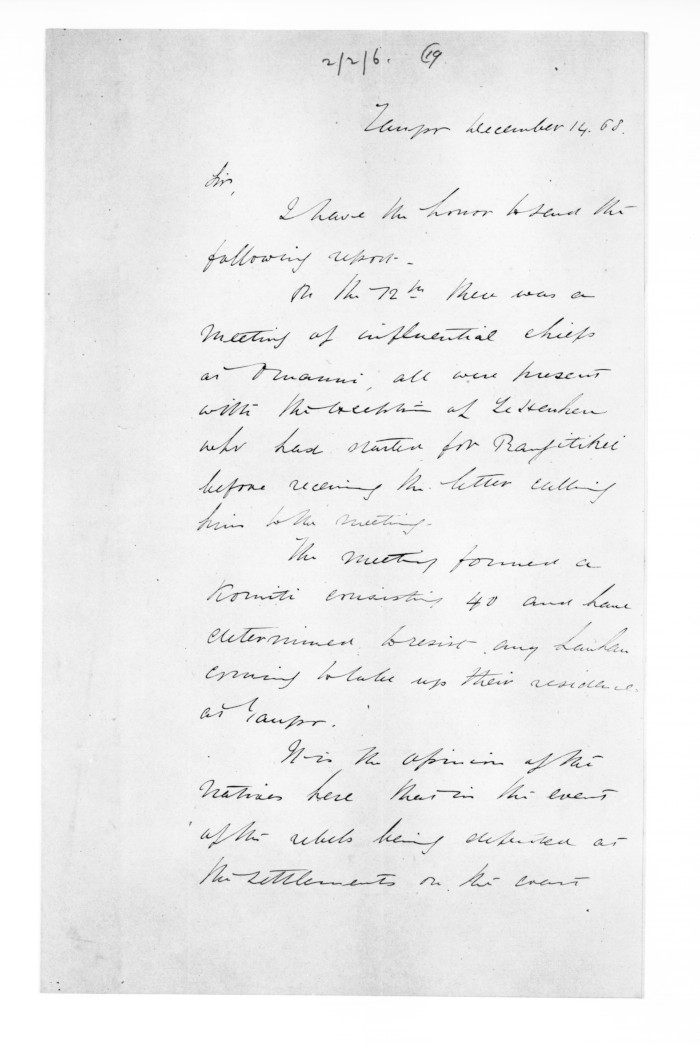 2/2/6. 19
Taupo December 14. 68.
Sir,
I have the honor to send the
following report.
On the 12th there was a
meeting of influential chiefs
at , all were present
with the exception of Te Heuheu
who had started for Rangitikei
before receiving the letter calling
him to the meeting.
The meeting formed a
Komiti consisting 40 and have
determined to resist any Hauhau
coming to take up their residence
at Taupo.
It is the opinion of the
Natives here that in the event
of the rebels being defeated at
the settlements on the coast